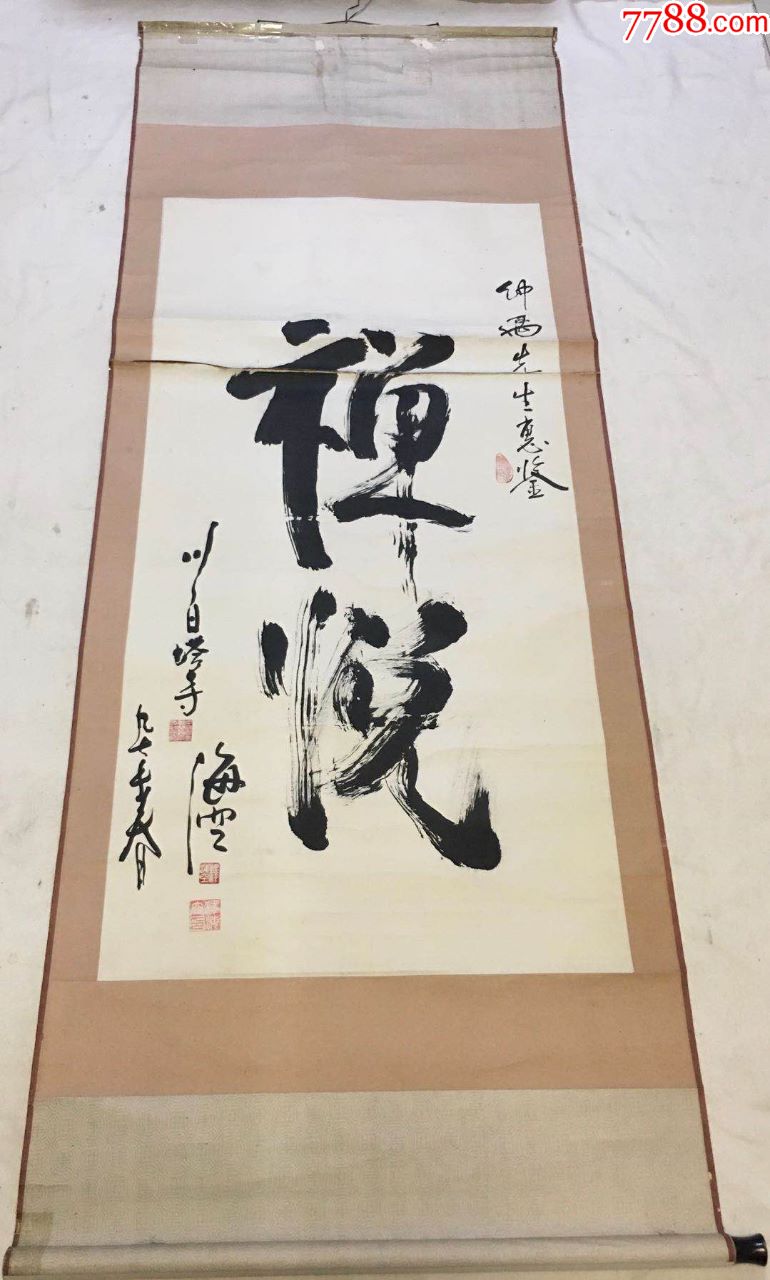 7788.com
先生惠鉴
禅悦
川白塔寺
海空
九七年春月